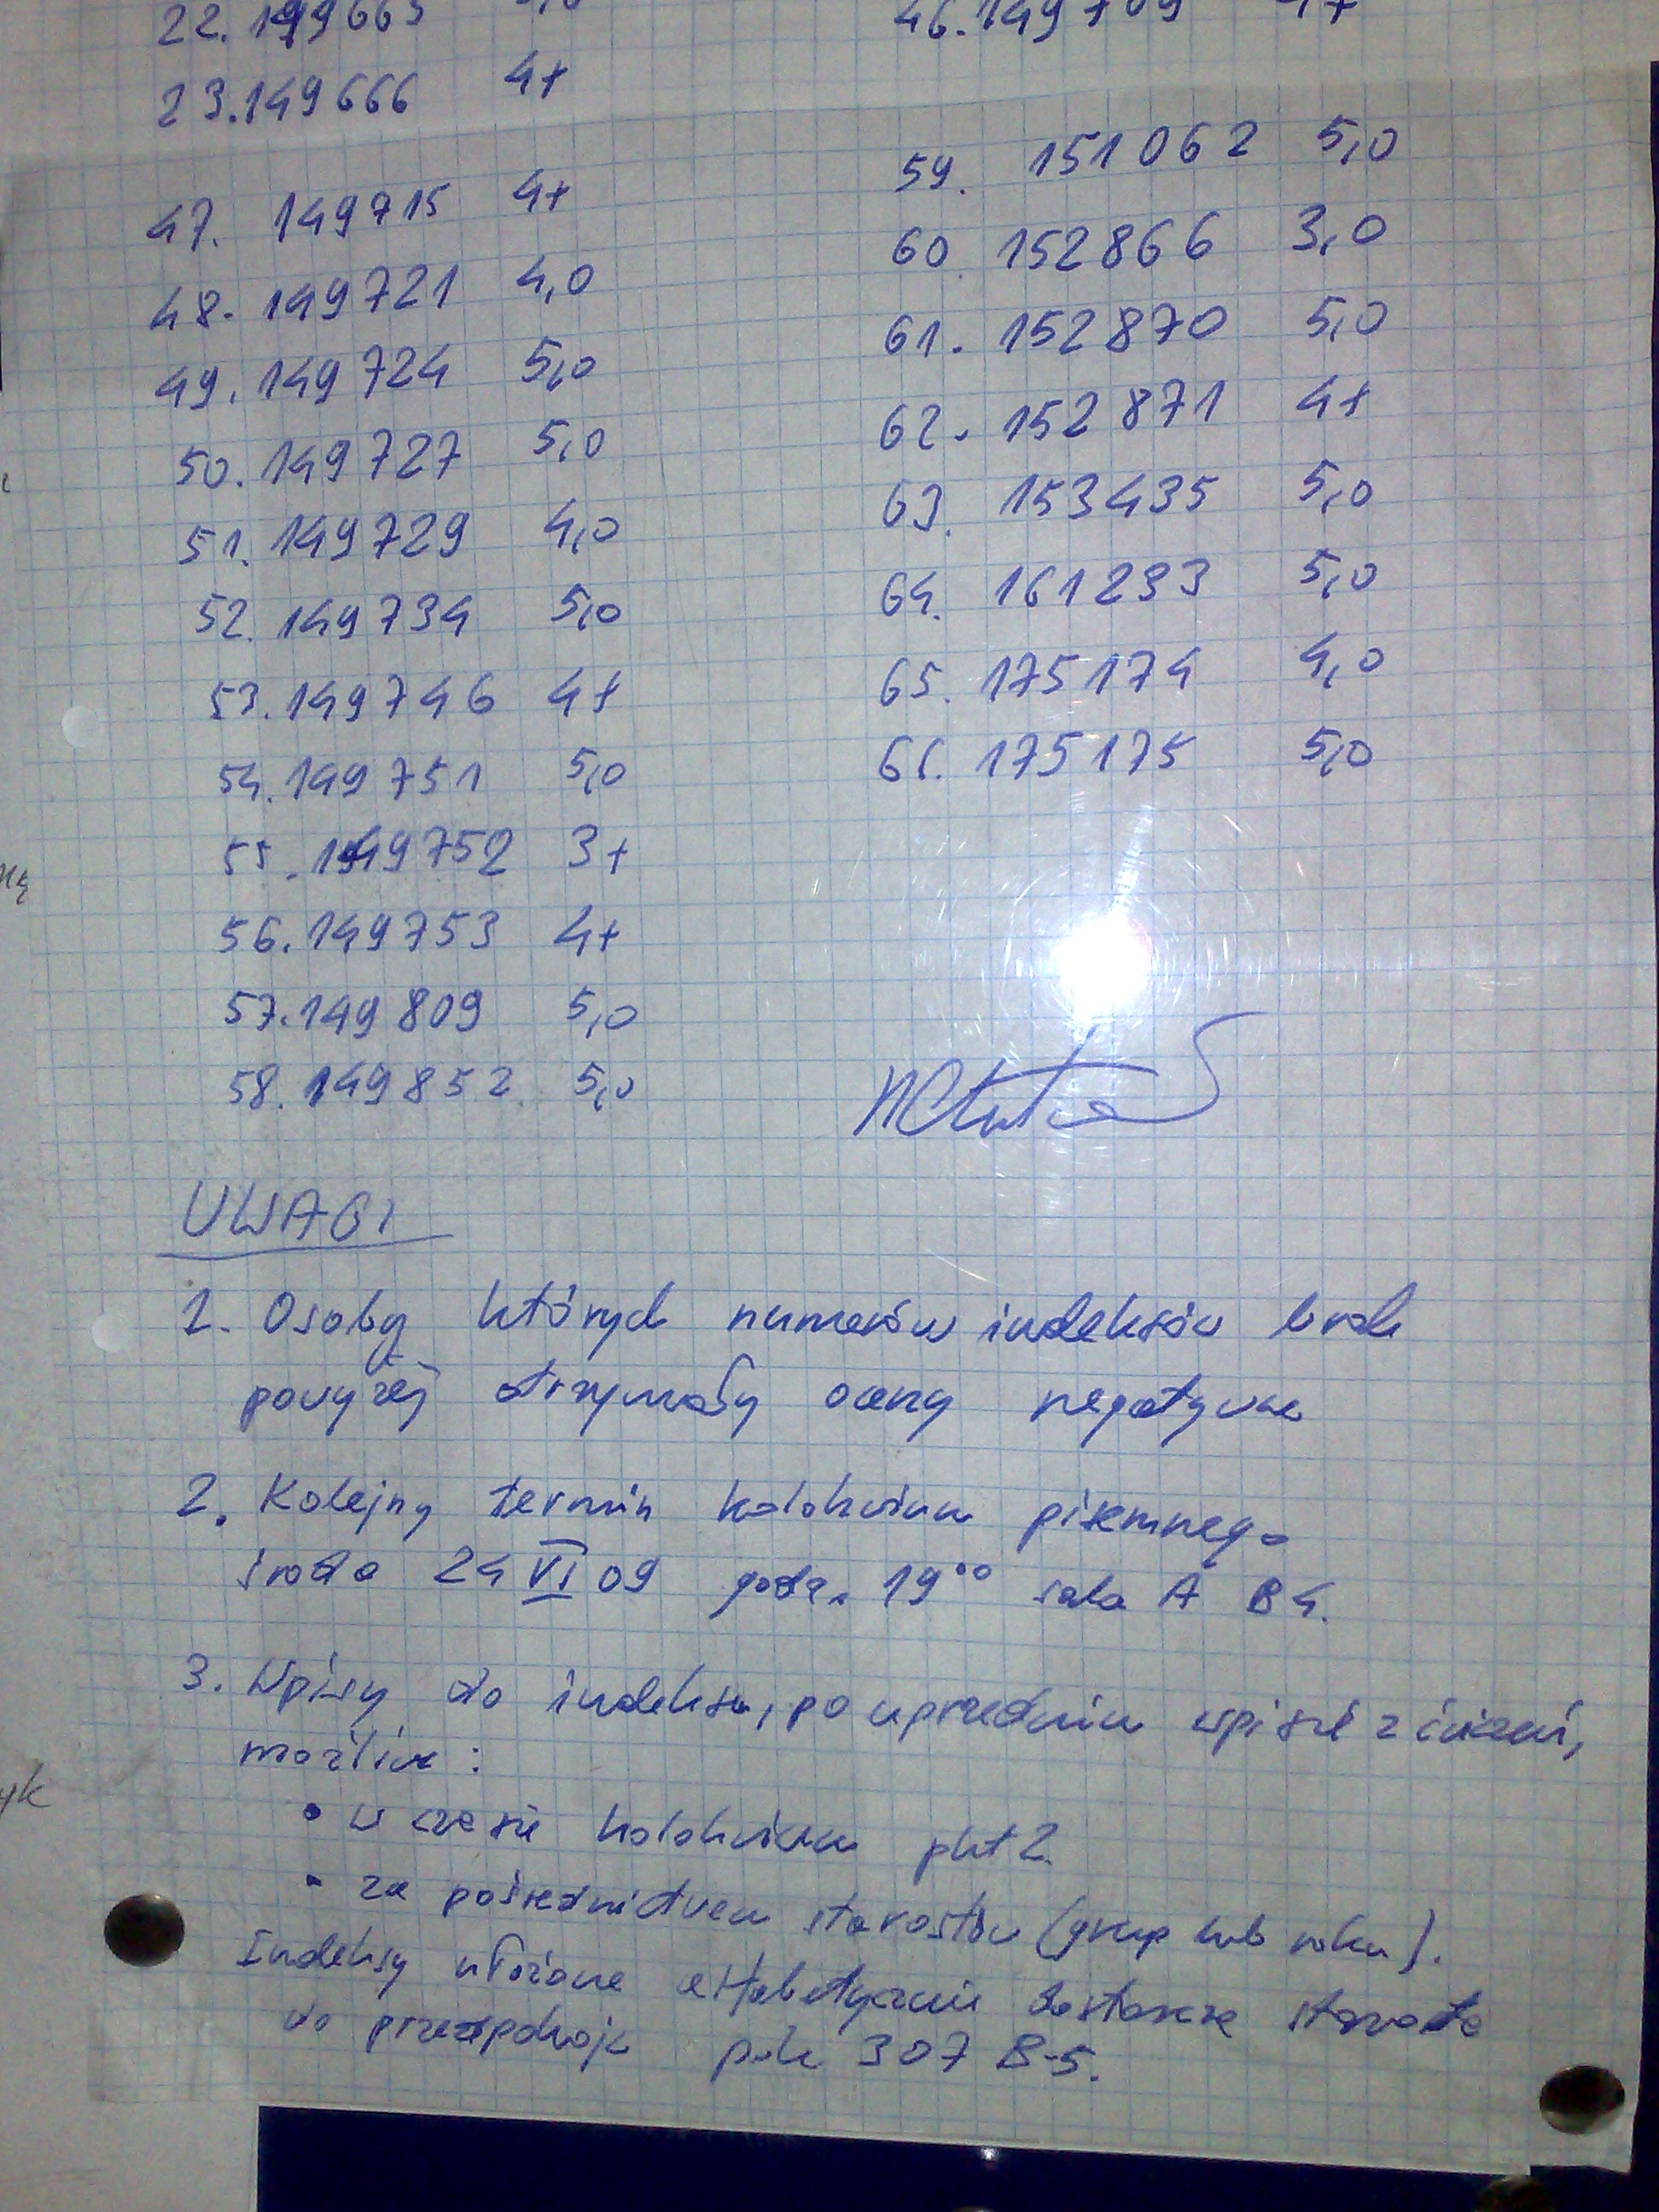 22. 149665
23. 149666 4+
46. 149709 4+
47. 149715 4+
48. 149721 4,0
49. 149724 5,0
50. 149727 5,0
51. 149729 4,0
52. 149734 5,0
53. 149746 4+
54. 149751 5,0
55. 149752 3+
56. 149753 4+
57. 149809 5,0
58. 149852 5,0
59. 151062 5,0
60. 152866 3,0
61. 152870 5,0
62. 152871 4+
63. 153435 5,0
64. 161233 5,0
65. 175174 4,0
66. 175175 5,0
UWAGI
1. Osoby których numerów indeksów brak
powyżej otrzymały oceny negatywne
2. Kolejny termin kolokwium pisemnego
środa 24 VI 09 godz. 19⁰⁰ sala A B4.
3. Wpisy do indeksu, po uprzednim wpisie z ćwiczeń,
możliwe:
• w czasie kolokwium pkt 2.
• za pośrednictwem starostów (grup lub roku).
Indeksy ułożone alfabetycznie dostarcza starosta
do przedpokoju pok 307 B-5.